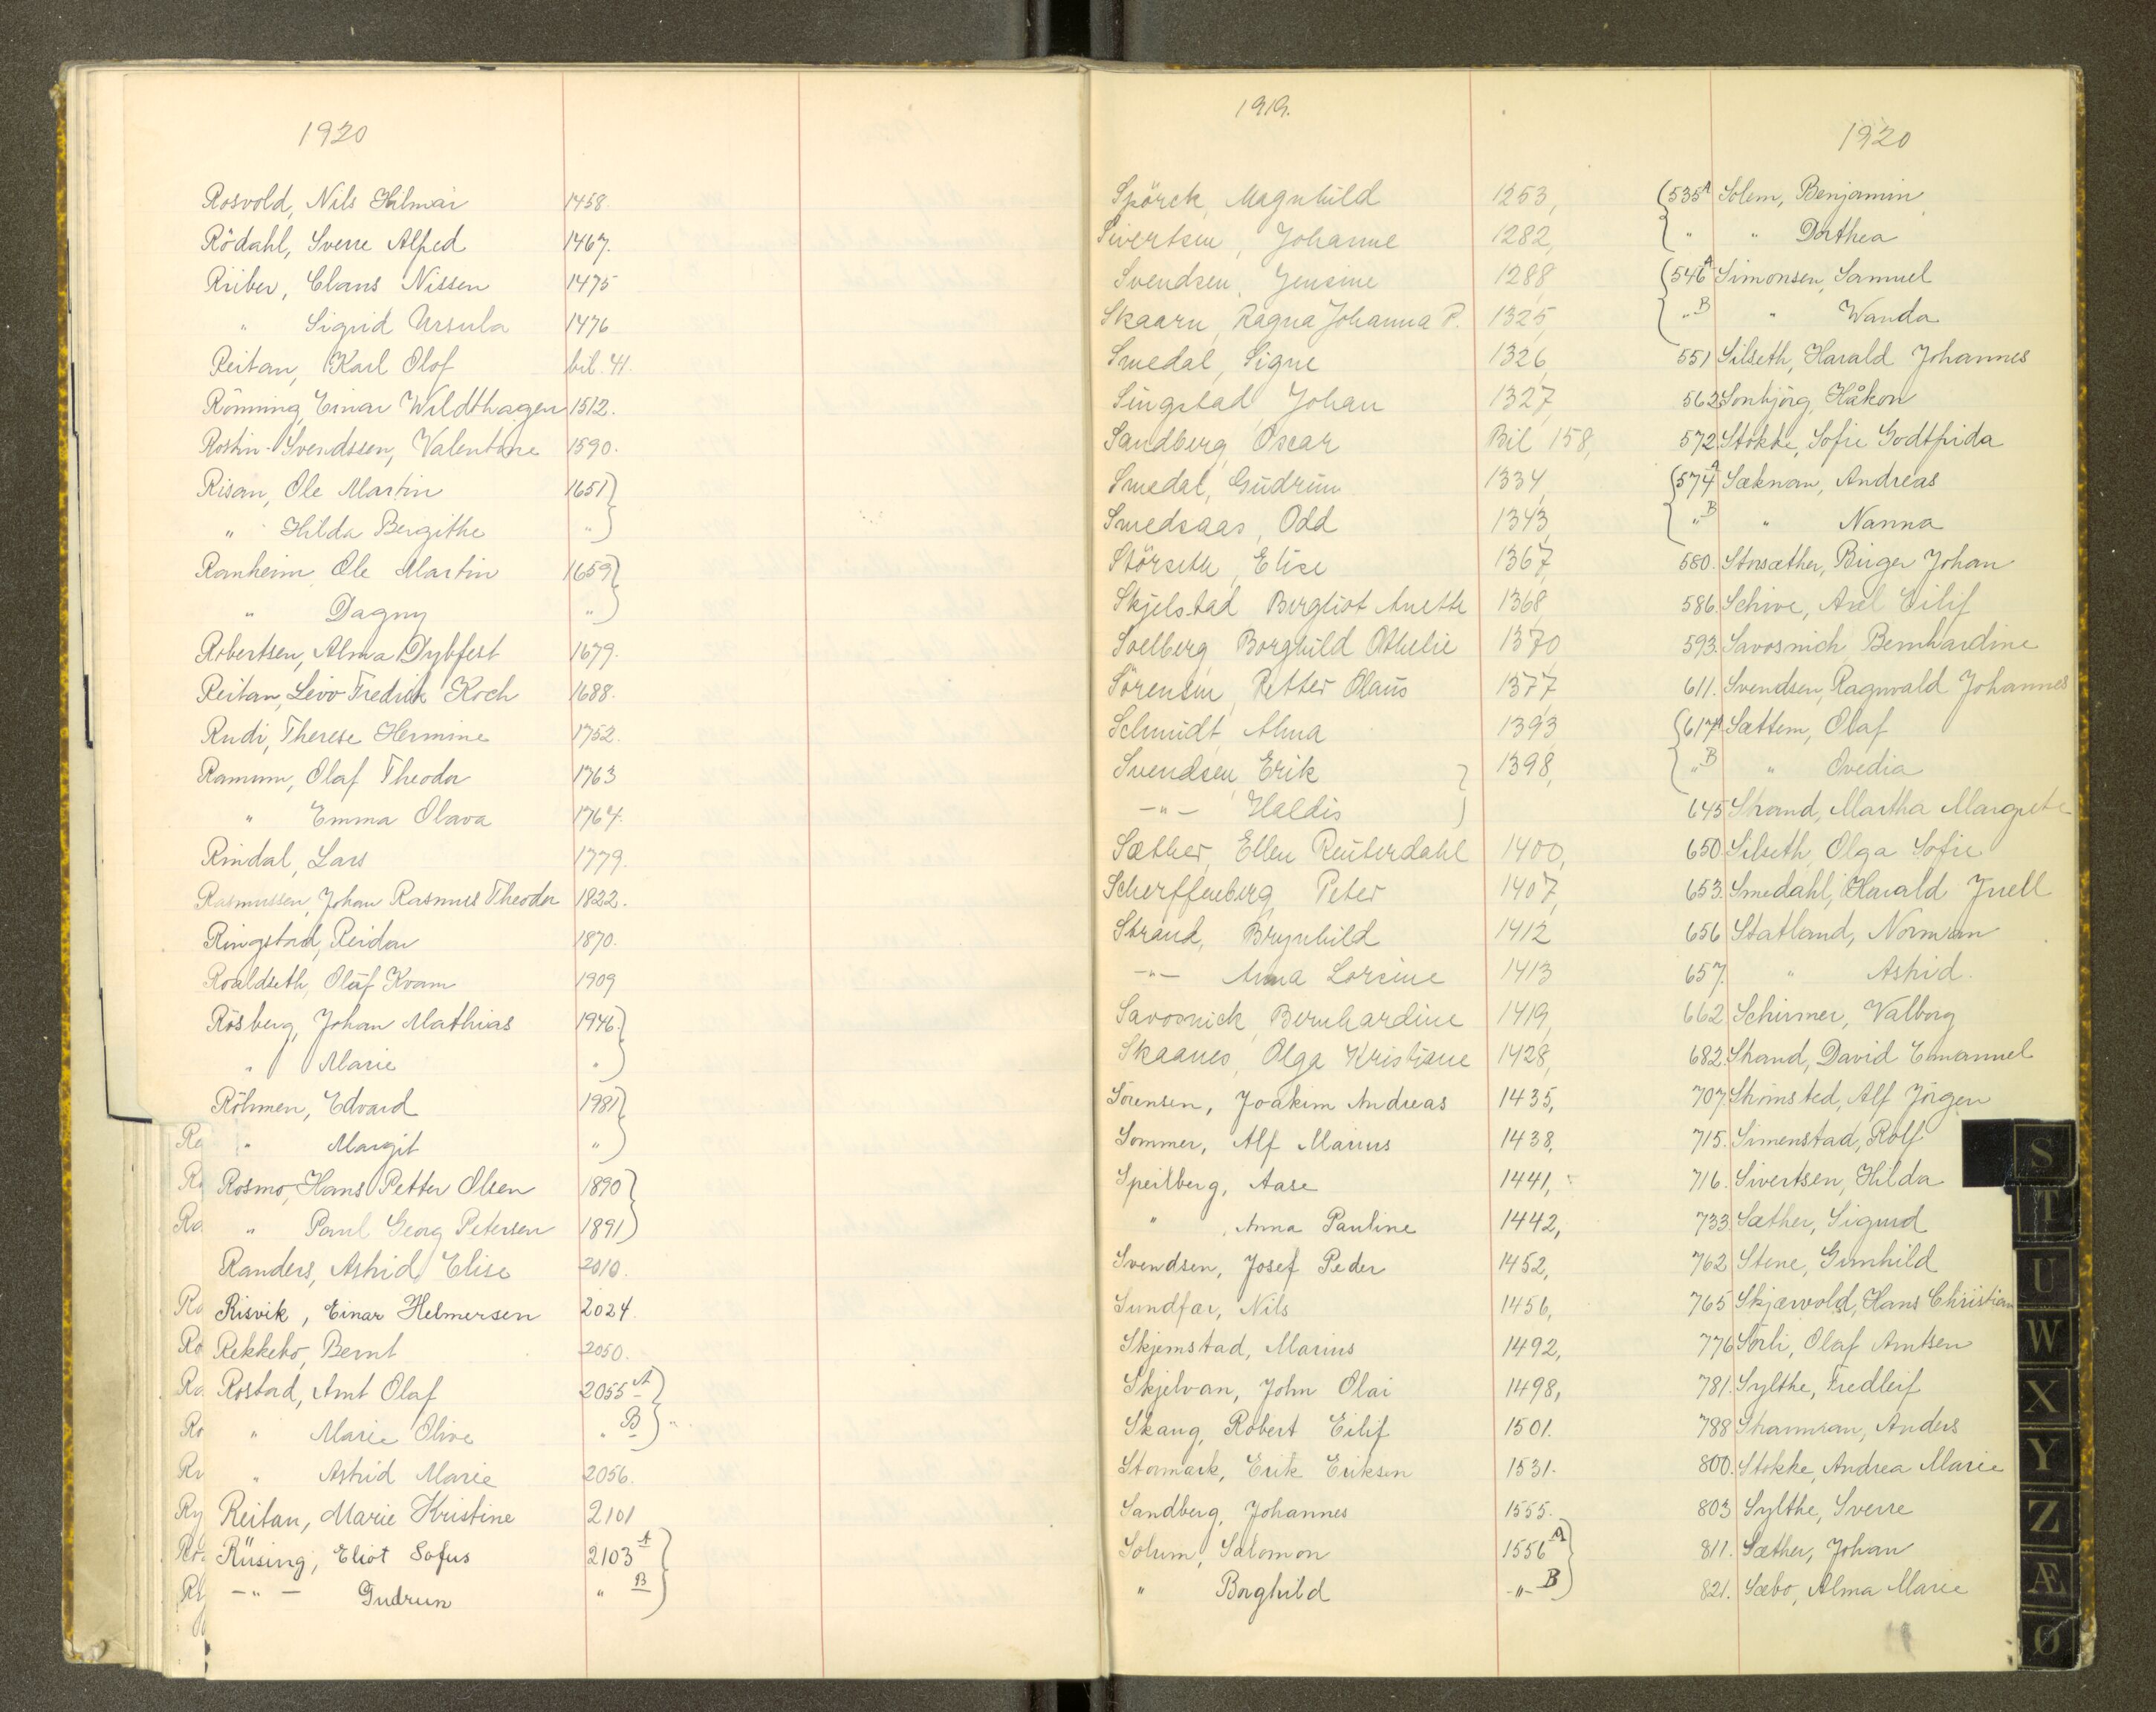 1920
Rosvold, Nils Hilmar 1458.
Rödahl, Sverre Alfred 1467.
Riiber, Claus Nissen 1475
" Sigrid Ursula 1476
Reitan, Karl Olof bil. 41.
Rönning, Einar Wildthagen 1512.
Rostin-Svendssen, Valentine 1590.
Risan, Ole Martin 1651
" Hilda Bergithe "
Ranheim, Ole Martin 1659
" Dagny "
Robertsen, Alma Dybfest 1679.
Reitan, Leiv Fredrik Koch 1688.
Rudi, Therese Hermine 1752.
Ramum, Olaf Theodor 1763
" Emma Olava 1764.
Rindal, Lars 1779.
Rasmussen, Johan Rasmus Theodor 1822.
Ringstad, Reidar 1870.
Roaldseth, Oluf Kvam 1909
Rösberg, Johan Mathias 1946.
" Marie "
Röhmen, Edvard 1981
" Margit "
Rosmo, Hans Petter Olsen 1890
" Paul Georg Petersen 1891
Randers, Astrid Elise 2010.
Risvik, Einar Helmersen 2024.
Rekkebo, Bernt 2050.
Rostad, Arnt Olaf 2055 A
" Marie Olive " B
" Astrid Marie 2056.
Reitan, Marie Kristine 2101
Rüsing, Eliot Sofus 2103 A
-"- Gudrun " B
1919.
Spörck, Magnhild 1253,
Sivertsen, Johanne 1282,
Svendsen, Jensine 1288,
Skaarn, Ragna Johanna P. 1325,
Smedal, Signe 1326,
Singstad, Johan 1327,
Sandberg, Oscar Bil 158,
Smedal, Gudrun 1334,
Smedsaas, Odd 1343,
Störseth, Elise 1367,
Skjelstad Bergliot Anette 1368,
Soelberg, Borghild Othelie 1370,
Sörensen, Petter Olaus 1377,
Schmidt, Alma 1393,
Svendsen, Erik 1398,
-"- Haldis
Sæther, Ellen Reuterdahl 1400,
Scherffenberg, Peter 1407,
Strand, Brynhild 1412
-"- Anna Lorsine 1413
Savosnick, Bernhardine 1419,
Skaanes, Olga Kristiane 1428,
Sörensen, Joakim Andreas 1435,
Sommer, Alf Marius 1438,
Speilberg, Aase 1441,
" , Anna Pauline 1442,
Svendsen, Josef Peder 1452,
Sundfær, Nils 1456,
Skjemstad, Marius 1492,
Skjelvan, John Olai 1498,
Skang, Robert Eilif 1501.
Stormark, Erik Eriksen 1531.
Sandberg, Johannes 1555.
Solum, Salomon 1556 A
" Borghild -"- B
1920
535 A Solem, Benjamin
" " Dorthea
546 A Simonsen, Samuel
" B " Wanda
551 Silseth, Harald Johannes
562 Sonbjörg, Håkon
572 Stokke, Sofie Godtfrida
574 A Sæknan, Andreas
" B " Nanna
580. Storsæther, Birger Johan
586. Schive, Axel Eilif
593. Savosnich Bernhardine
611. Svendsen, Ragnvald Johannes
617 A Sættem, Olaf
" B " Ovedia
645 Strand, Martha Margrete
650 Silseth, Olga Sofie
653. Smedahl, Harald Juell
656 Statland, Norman
657. " Astrid.
662 Schirmer, Valborg
682. Strand, David Emanuel
707. Strömsted, Alf Jörgen
715. Simenstad, Rolf
716. Sivertsen, Hilda
733 Sæther, Sigurd
762 Stene, Gunhild
765 Skjærvold, Hans Christian
776 Sörli, Olaf Arntsen
781. Sylthe, Fredleif
788 Stramran, Anders
800. Stokke, Andrea Marie
803 Sylthe, Sverre
811. Sæther, Johan
821. Sæbo, Alma Marie
S
T
U
W
X
Y
Z
Æ
Ø